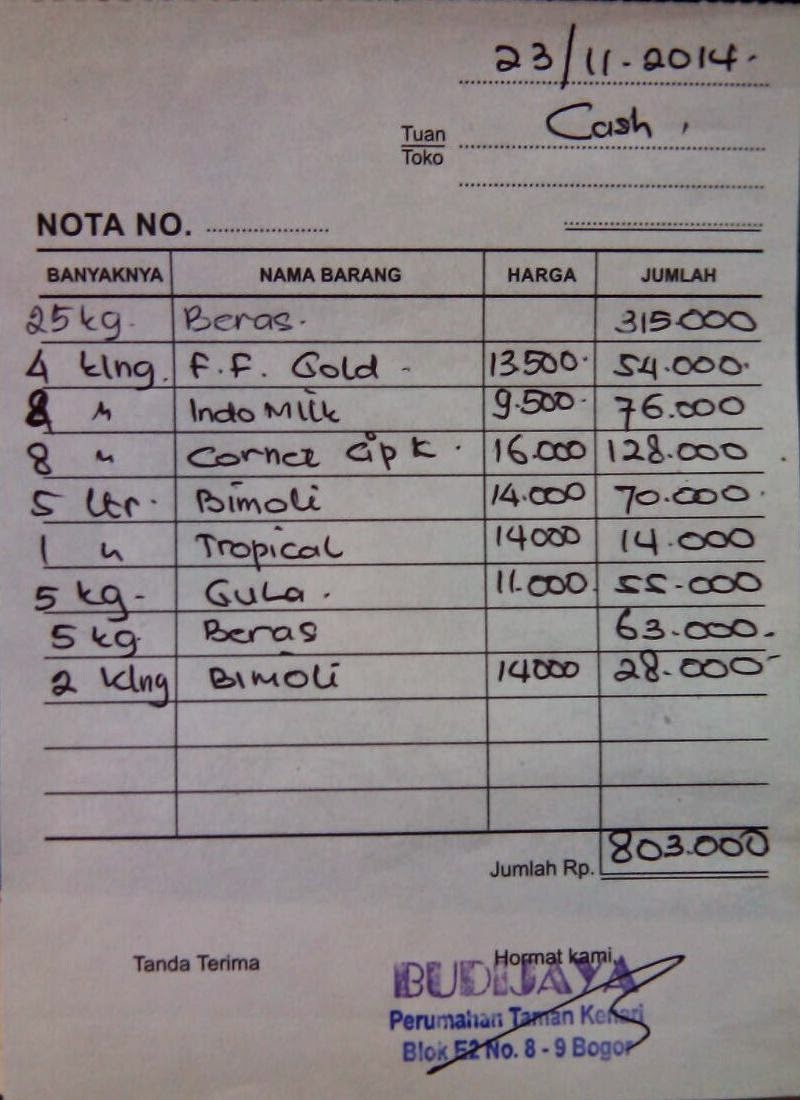 23/11-2014.
Tuan
Toko
Cash,
NOTA NO.
BANYAKNYA NAMA BARANG HARGA JUMLAH
25 kg. Beras. 315.000
4 klng. F.F. Gold - 13.500. 54.000.
8 〃 Indo Milk 9.500. 76.000
8 〃 Cornet cip k. 16.000 128.000
5 Ltr. Bimoli 14.000 70.000.
1 〃 Tropical 14000 14.000
5 kg- Gula. 11.000. 55.000
5 kg. Beras 63.000.-
2 klng Bimoli 14000 28.000-
Jumlah Rp. 803.000
Tanda Terima Hormat kami,
BUDIJAYA
Perumahan Taman Kenari
Blok E2 No. 8 - 9 Bogor